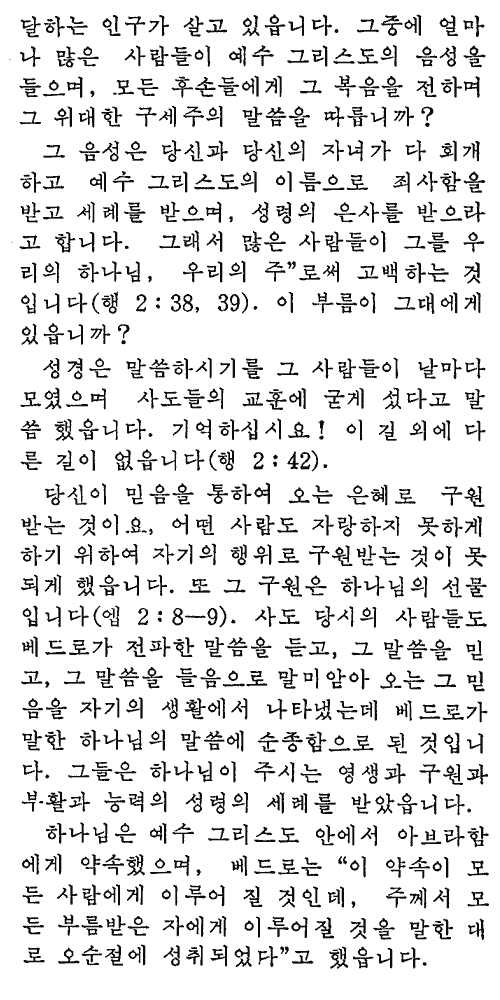 달하는 인구가 살고 있읍니다. 그중에 얼마
나 많은 사람들이 예수 그리스도의 음성을
들으며, 모든 후손들에게 그 복음을 전하며
그 위대한 구세주의 말씀을 따릅니까?
그 음성은 당신과 당신의 자녀가 다 회개
하고 예수 그리스도의 이름으로 죄사함을
받고 세례를 받으며, 성령의 은사를 받으라
고 합니다. 그래서 많은 사람들이 그를 우
리의 하나님, 우리의 주”로써 고백하는 것
입니다(행 2:38, 39). 이 부름이 그대에게
있읍니까?
성경은 말씀하시기를 그 사람들이 날마다
모였으며 사도들의 교훈에 굳게 섰다고 말
씀 했읍니다. 기억하십시요! 이 길 외에 다
른 길이 없읍니다(행 2:42).
당신이 믿음을 통하여 오는 은혜로 구원
받는 것이요, 어떤 사람도 자랑하지 못하게
하기 위하여 자기의 행위로 구원받는 것이 못
되게 했읍니다. 또 그 구원은 하나님의 선물
입니다(엡 2:8—9). 사도 당시의 사람들도
베드로가 전파한 말씀을 듣고, 그 말씀을 믿
고, 그 말씀을 들음으로 말미암아 오는 그 믿
음을 자기의 생활에서 나타냈는데 베드로가
말한 하나님의 말씀에 순종함으로 된 것입니
다. 그들은 하나님이 주시는 영생과 구원과
부활과 능력의 성령의 세례를 받았읍니다.
하나님은 예수 그리스도 안에서 아브라함
에게 약속했으며, 베드로는 “이 약속이 모
든 사람에게 이루어 질 것인데, 주께서 모
든 부름받은 자에게 이루어질 것을 말한 대
로 오순절에 성취되었다”고 했읍니다.